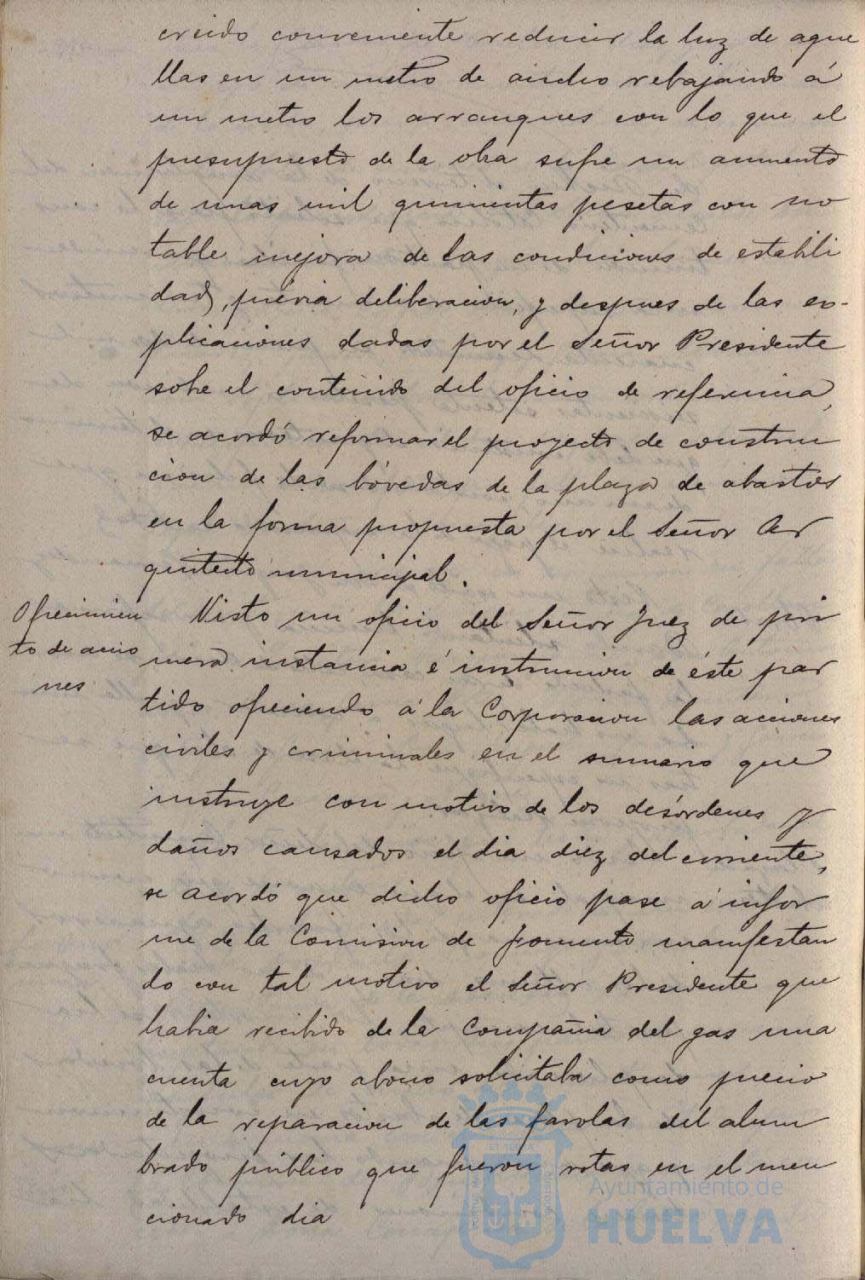 creido conveniente reducir la luz de aque
llas en un metro de ancho rebajando á
un metro los arranques con lo que el
presupuesto de la obra sufre un aumento
de unas mil quinientas pesetas con no
table mejora de las condiciones de estabili
dad, prévia deliberacion, y despues de las ex-
plicaciones dadas por el Señor Presidente
sobre el contenido del oficio de referencia,
se acordó reformar el proyecto de construc
cion de las bóvedas de la plaza de abastos
en la forma propuesta por el Señor Ar
quitecto municipal.
Ofrecimien
to de accio
nes
Visto un oficio del Señor Juez de pri
mera instancia é instruccion de éste par
tido ofreciendo á la Corporacion las acciones
civiles y criminales en el sumario que
instruye con motivo de los desórdenes y
daños causados el dia diez del corriente,
se acordó que dicho oficio pase á infor
me de la Comision de fomento manifestan
do con tal motivo el Señor Presidente que
habia recibido de la Compañia del gas una
cuenta cuyo abono solicitaba como precio
de la reparacion de las farolas del alum
brado público que fueron rotas en el men
cionado dia
Ayuntamiento de
HUELVA